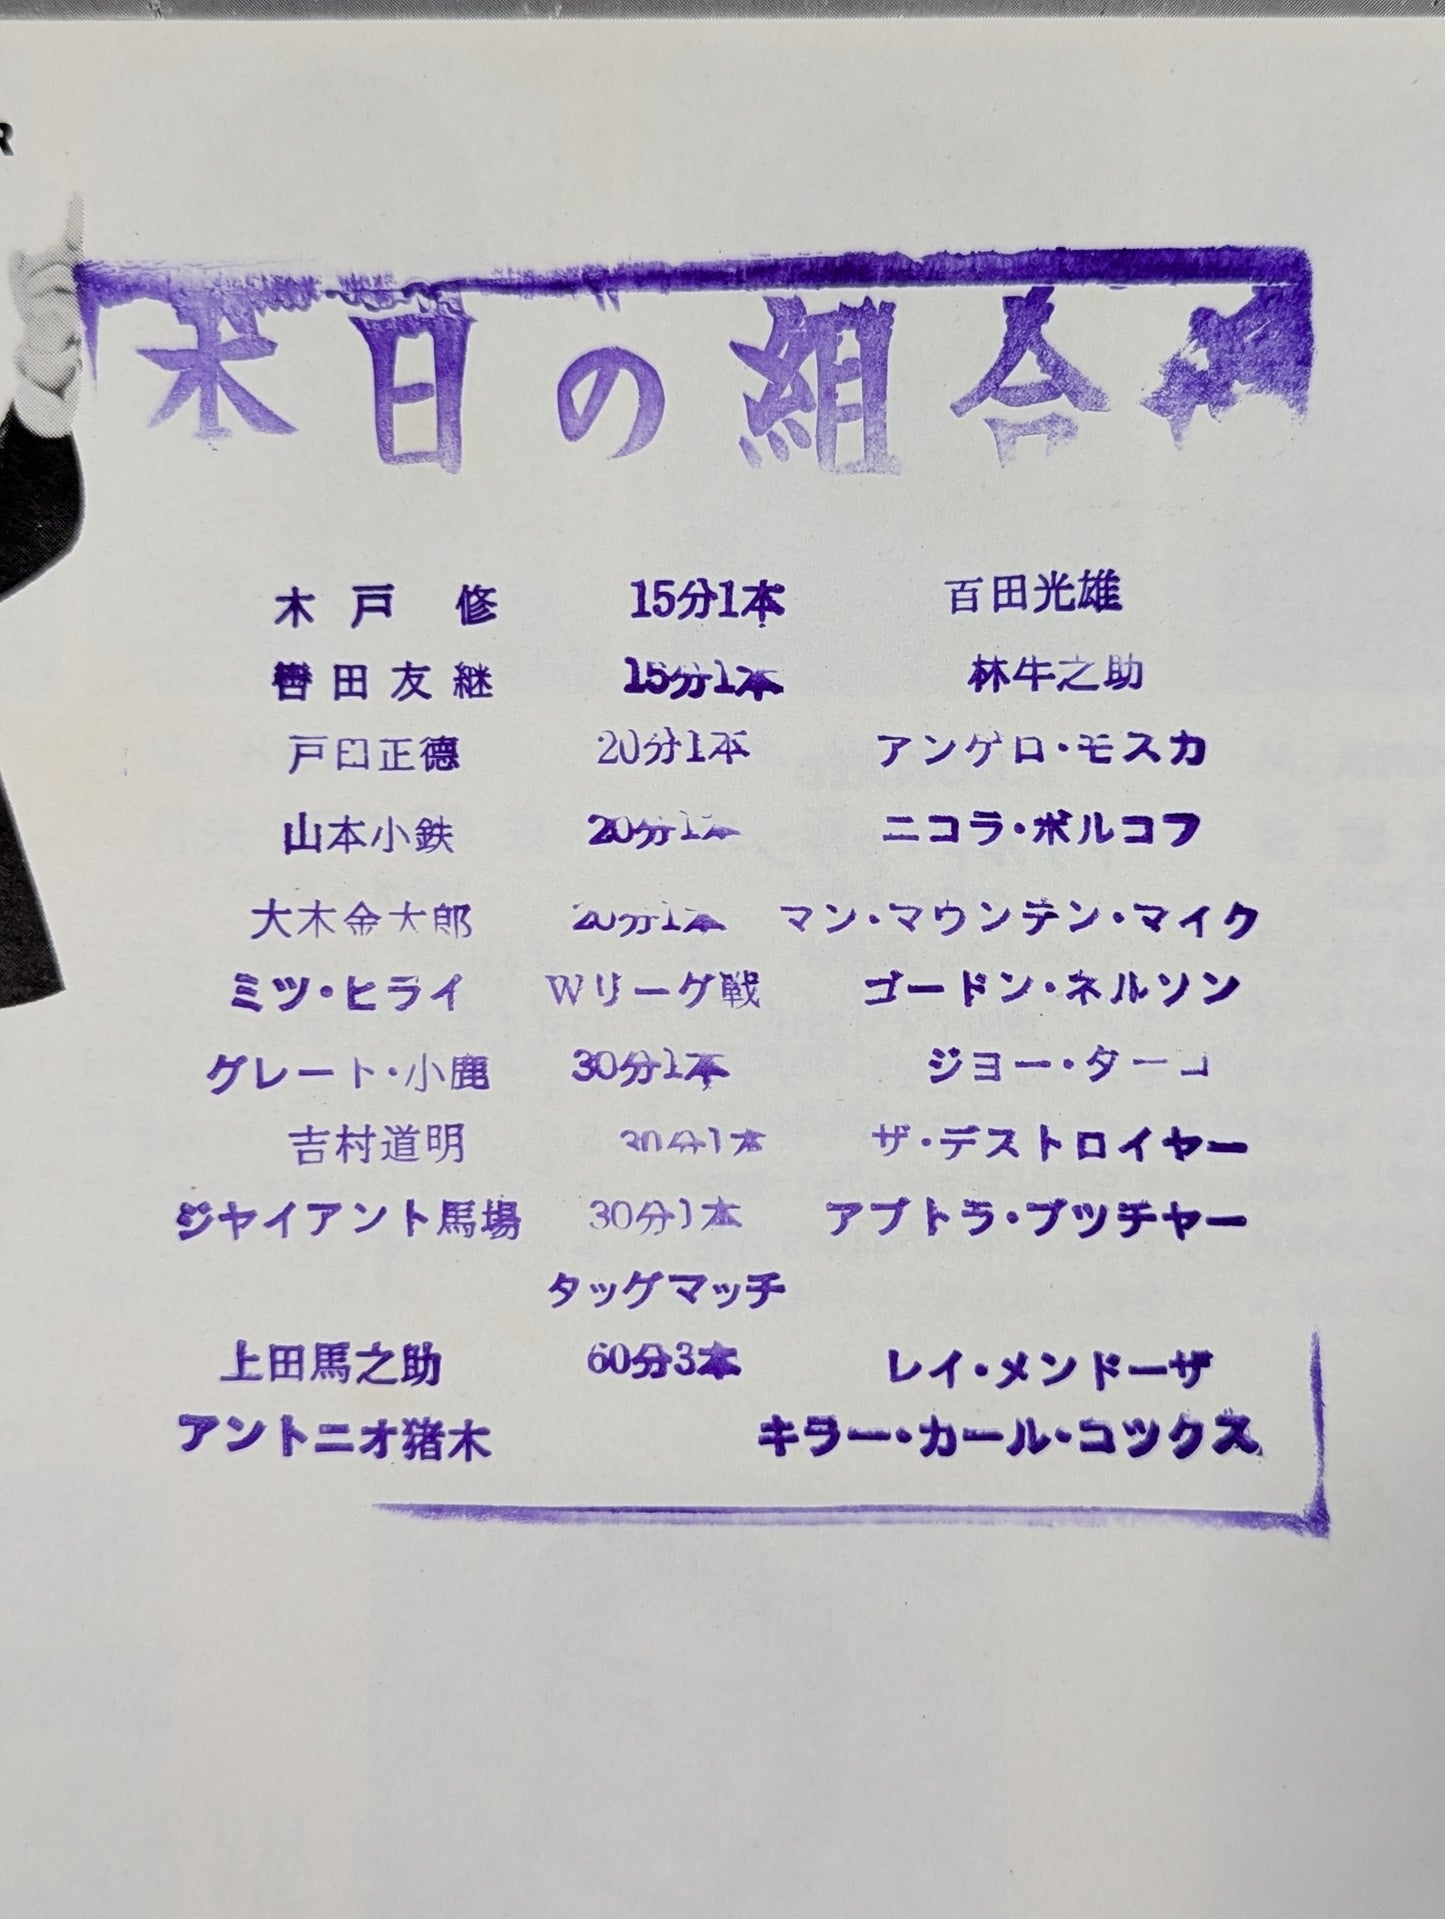 R
本日の組合せ
木戸修 15分1本 百田光雄
轡田友継 15分1本 林牛之助
戸口正徳 20分1本 アンゲロ・モスカ
山本小鉄 20分1本 ニコラ・ボルコフ
大木金太郎 20分1本 マン・マウンテン・マイク
ミツ・ヒライ Wリーグ戦 ゴードン・ネルソン
グレート・小鹿 30分1本 ジヨー・ターコ
吉村道明 30分1本 ザ・デストロイヤー
ジャイアント馬場 30分1本 アブトラ・ブツチャー
タッグマッチ
上田馬之助 60分3本 レイ・メンドーザ
アントニオ猪木 キラー・カール・コツクス